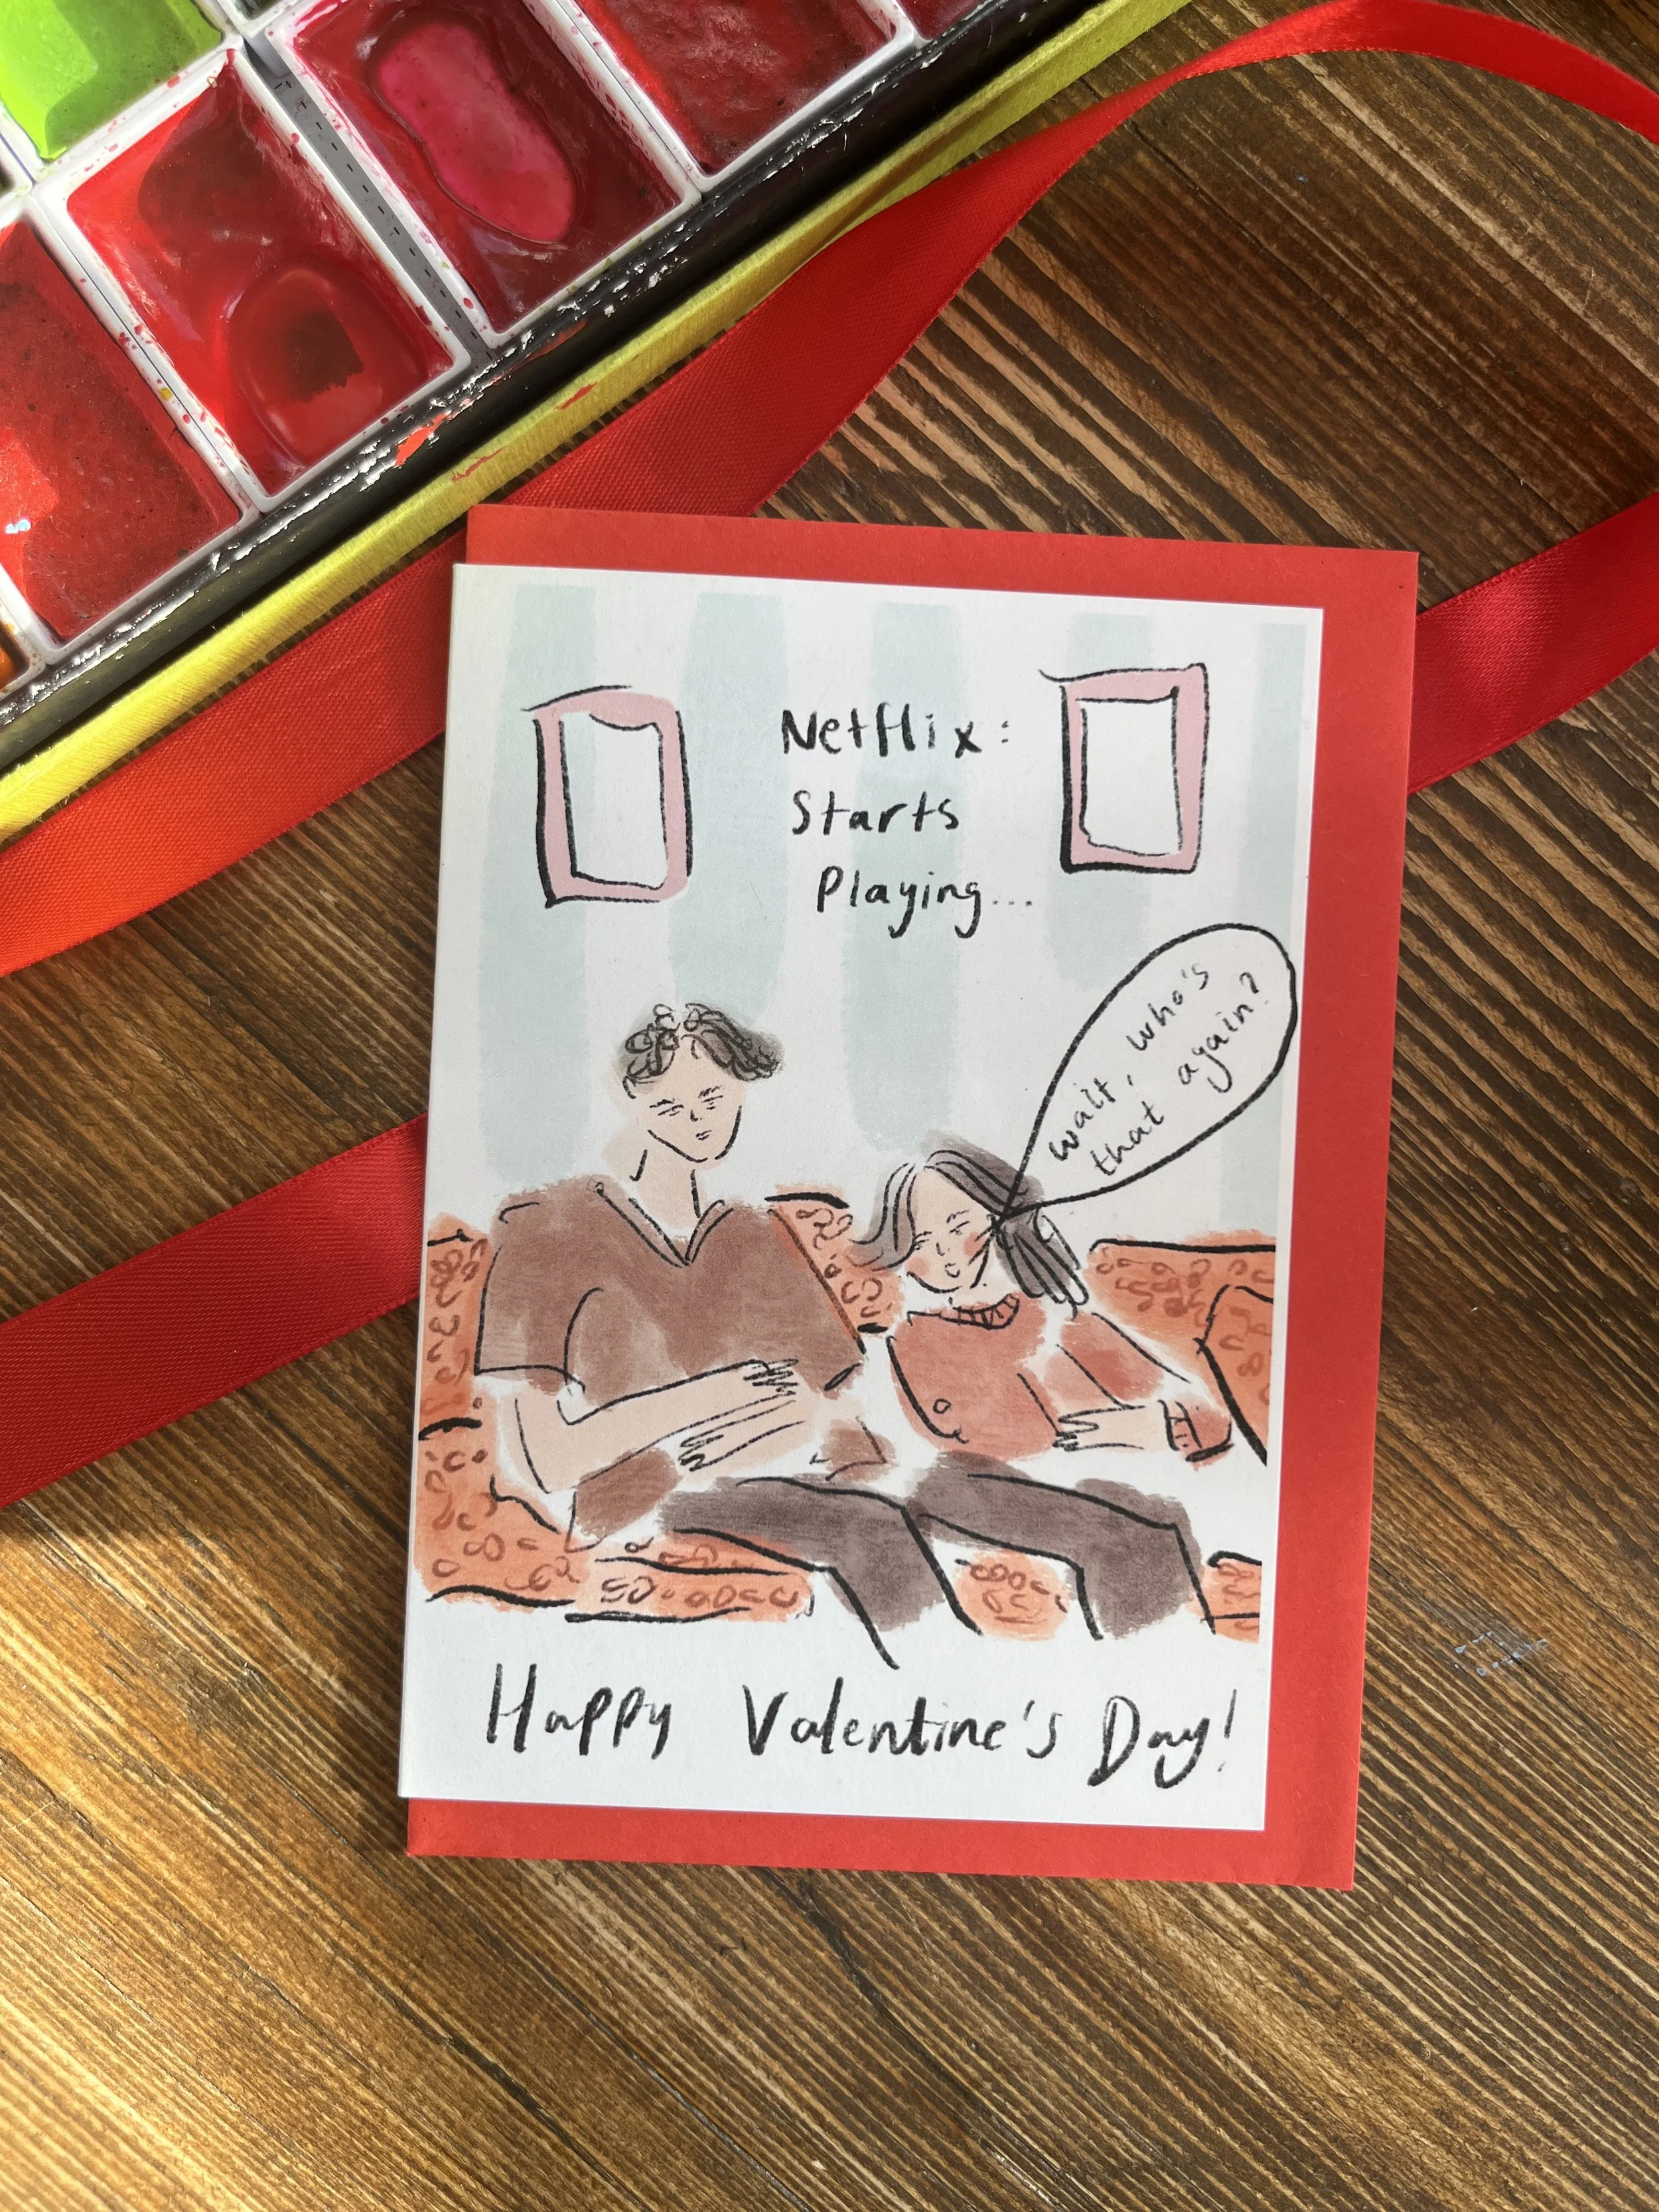 Netflix:
Starts
Playing...
wait, who's
that again?
Happy Valentine's Day!